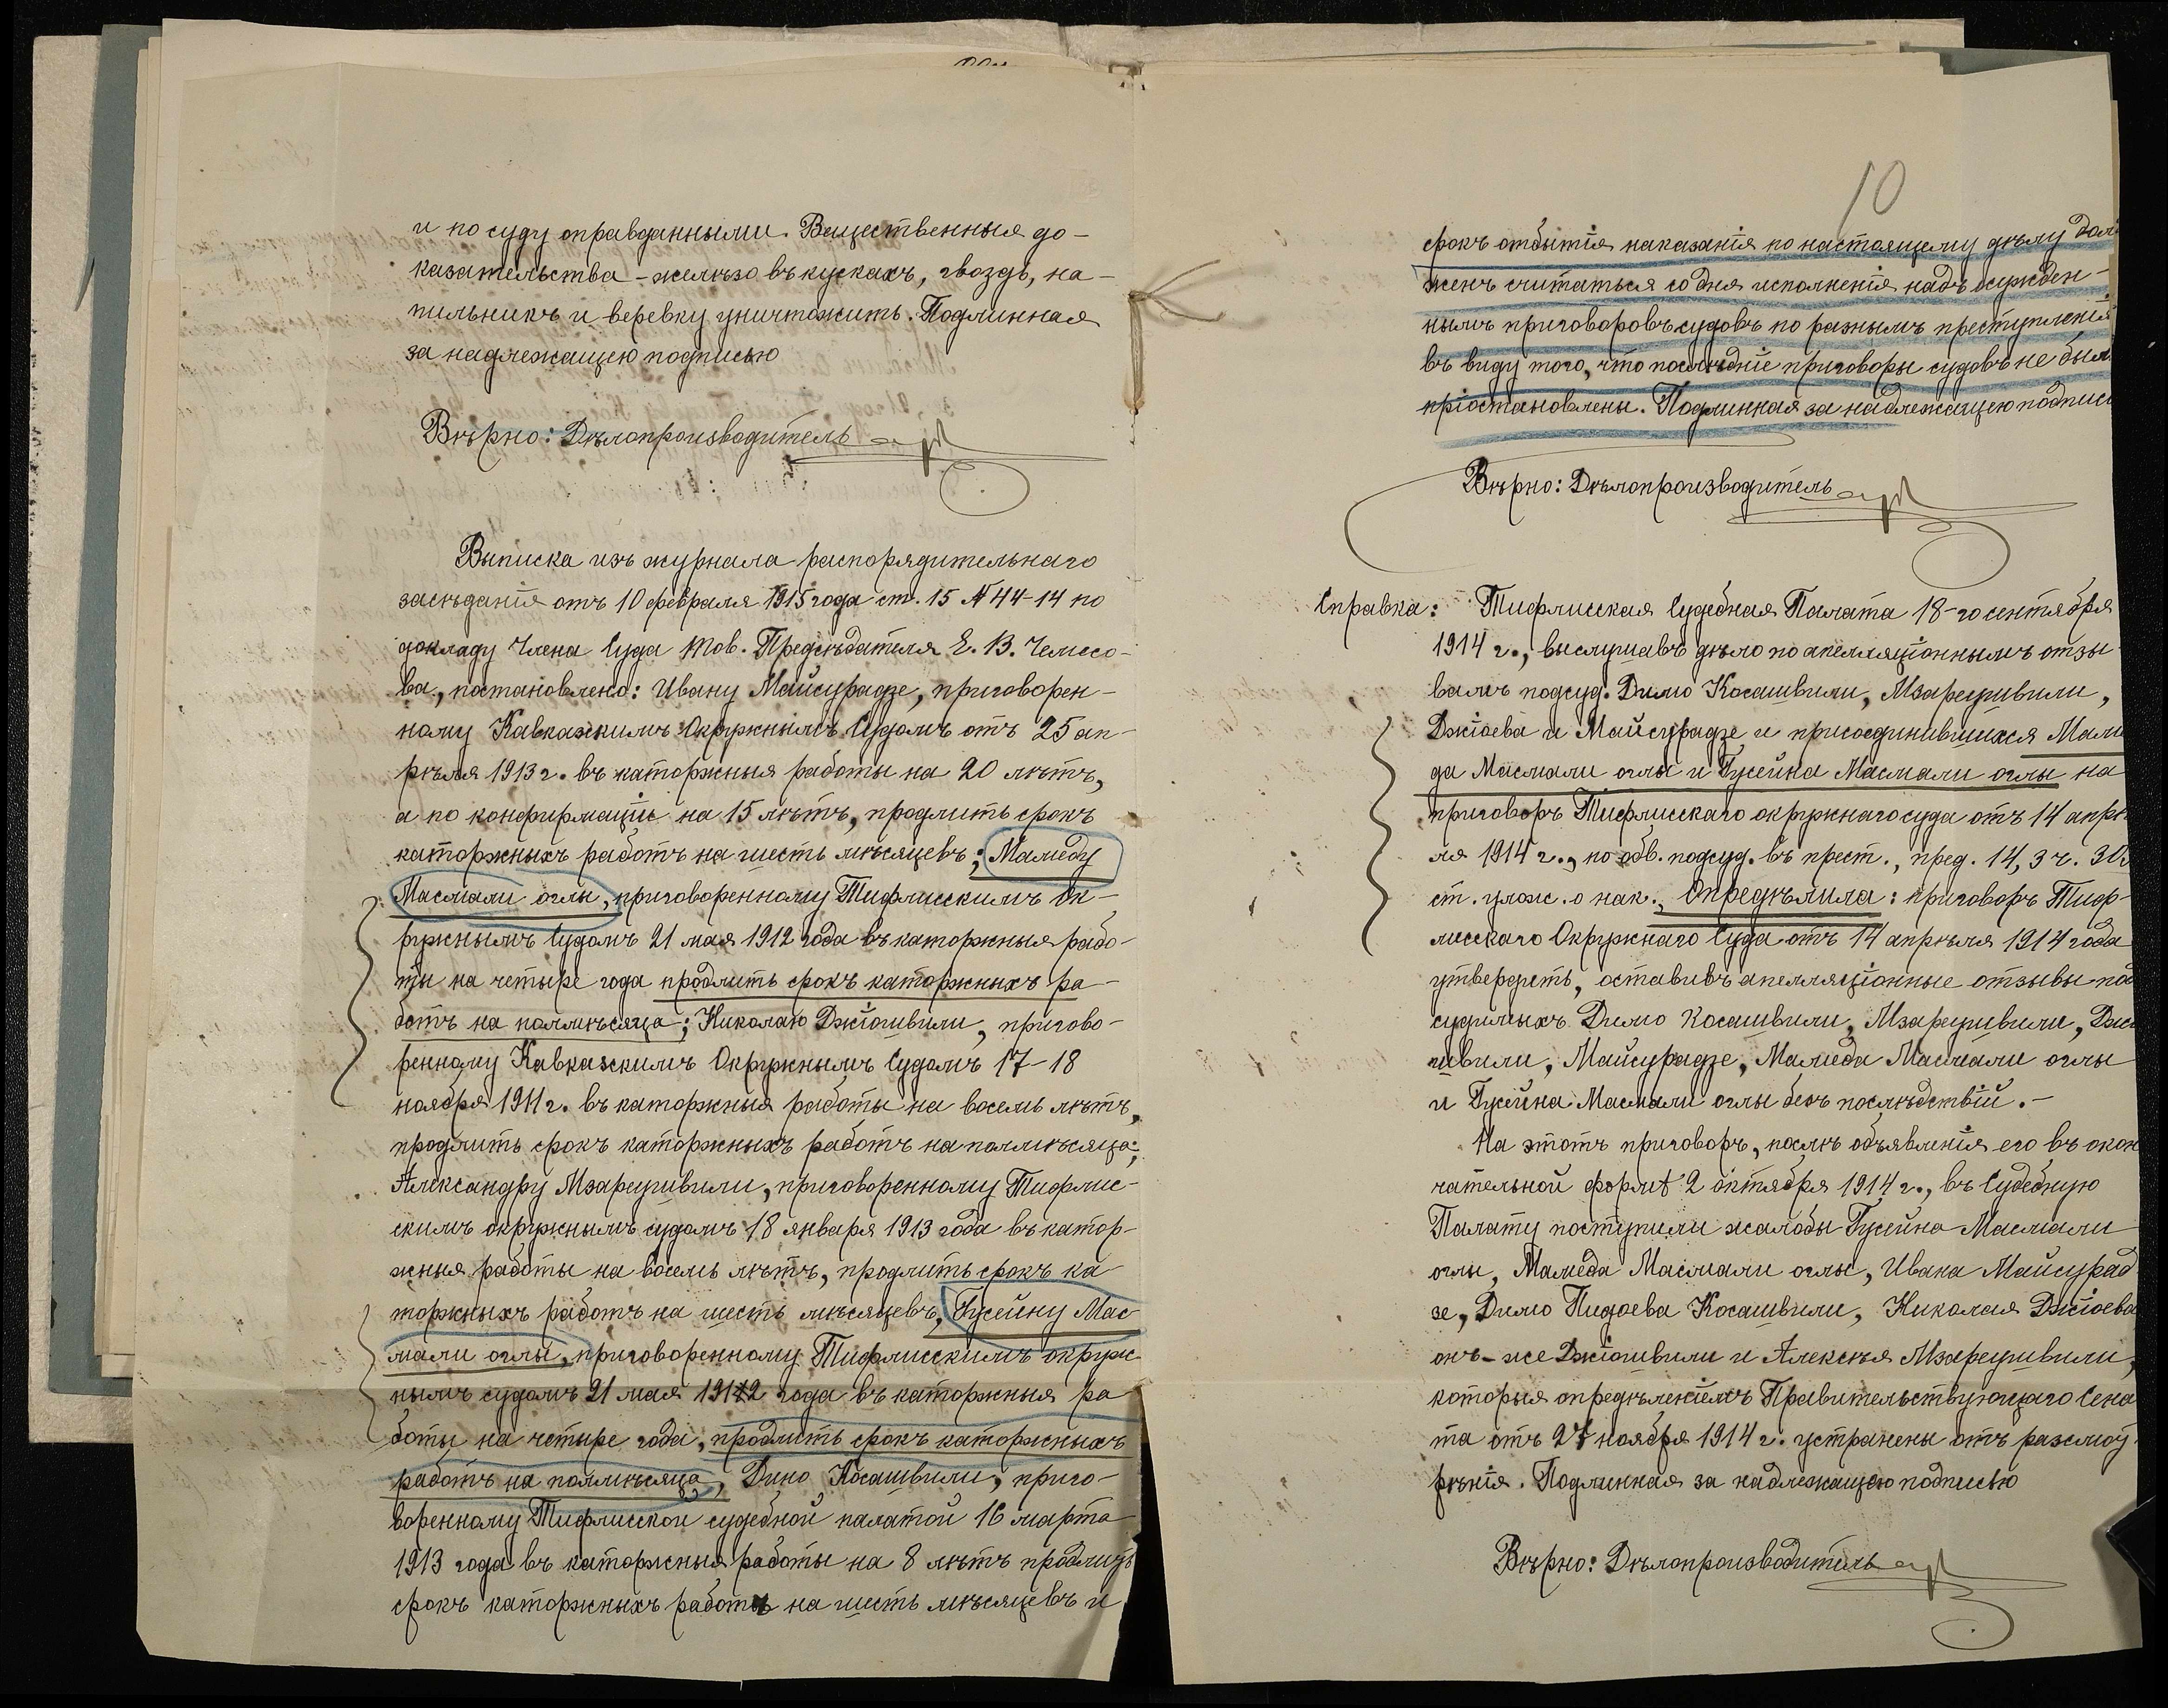 и по суду оправданными. Вещественныя до-
казательства - желѣзо въ кускахъ, гвоздь, на-
пильникъ и веревку уничтожить. Подлинная
за надлежащею подписью
Вѣрно: Дѣлопроизводитель
Выписка изъ журнала распорядительнаго
засѣданія отъ 10 февраля 1915 года ст. 15 № 44-14 по
докладу Члена Суда Тов. Предсѣдателя Е. В. Чемесо-
ва, постановлено: Ивану Майсурадзе, приговорен-
ному Кавказскимъ Окружнымъ Судомъ отъ 25 ап-
рѣля 1913 г. въ каторжныя работы на 20 лѣтъ,
а по конфирмаціи на 15 лѣтъ, продлить срокъ
каторжныхъ работъ на шесть мѣсяцевъ; Мамеду
Масмали оглы, приговоренному Тифлисскимъ Ок-
ружнымъ Судомъ 21 мая 1912 года въ каторжныя рабо-
ты на четыре года продлить срокъ каторжныхъ ра-
ботъ на полмѣсяца; Николаю Джіошвили, пригово-
ренному Кавказскимъ Окружнымъ Судомъ 17-18
ноября 1911 г. въ каторжныя работы на восемь лѣтъ,
продлить срокъ каторжныхъ работъ на полмѣсяца;
Александру Мзарецивили, приговоренному Тифлис-
скимъ окружнымъ судомъ 18 января 1913 года въ катор-
жныя работы на восемь лѣтъ, продлить срокъ ка-
торжныхъ работъ на шесть мѣсяцевъ, Гусейну Мас-
мали оглы, приговоренному Тифлисскимъ окруж-
нымъ судомъ 21 мая 1912 года въ каторжныя ра-
боты на четыре года, продлить срокъ каторжныхъ
работъ на полмѣсяца, Димо Косашвили, приго-
воренному Тифлисской судебной палатой 16 марта
1913 года въ каторжныя работы на 8 лѣтъ продлить
срокъ каторжныхъ работъ на шесть мѣсяцевъ и
10
срокъ отбытія наказанія по настоящему дѣлу дол
женъ считаться со дня исполненія надъ осужден-
нымъ приговоровъ судовъ по разнымъ преступленія
въ виду того, что послѣдніе приговоры судовъ не был
пріостановлены. Подлинная за надлежащею подпис
Вѣрно: Дѣлопроизводитель
Справка: Тифлисская Судебная Палата 18-го сентября
1914 г., выслушавъ дѣло по апелляціоннымъ отзы-
вамъ подсуд. Димо Косашвили, Мзарецивили,
Джіоева и Майсурадзе и присоединившихся Маме
да Масмали оглы и Гусейна Масмали оглы на
приговоръ Тифлисскаго окружнаго суда отъ 14 апрѣ
ля 1914 г., по обв. подсуд. въ прест., пред. 14, 3 ч.
ст. улож. о нак., опредѣлила: приговоръ Тиф-
лисскаго Окружнаго Суда отъ 14 апрѣля 1914 года
утвердить, оставивъ апелляціонные отзывы под
судимыхъ Димо Косашвили, Мзарецивили, Джі
швили, Майсурадзе, Мамеда Масмали оглы
и Гусейна Масмали оглы безъ послѣдствій.-
На этотъ приговоръ, послѣ объявленія его въ окон
чательной формѣ 2 октября 1914 г., въ Судебную
Палату поступили жалобы Гусейна Масмали
оглы, Мамеда Масмали оглы, Ивана Майсурад
зе, Димо Косашвили, Николая Джіоева
онъ-же Джіошвили и Алексѣя Мзарецивили,
которыя опредѣленіемъ Правительствующаго Сена
та отъ ноября 1914 г. устранены отъ разсмот
рѣнія. Подлинная за надлежащею подписью
Вѣрно: Дѣлопроизводитель